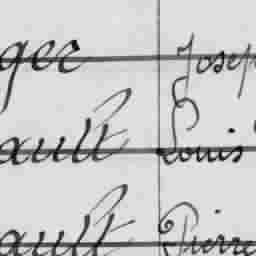 ger Josep
ault Louis
ault Pierre